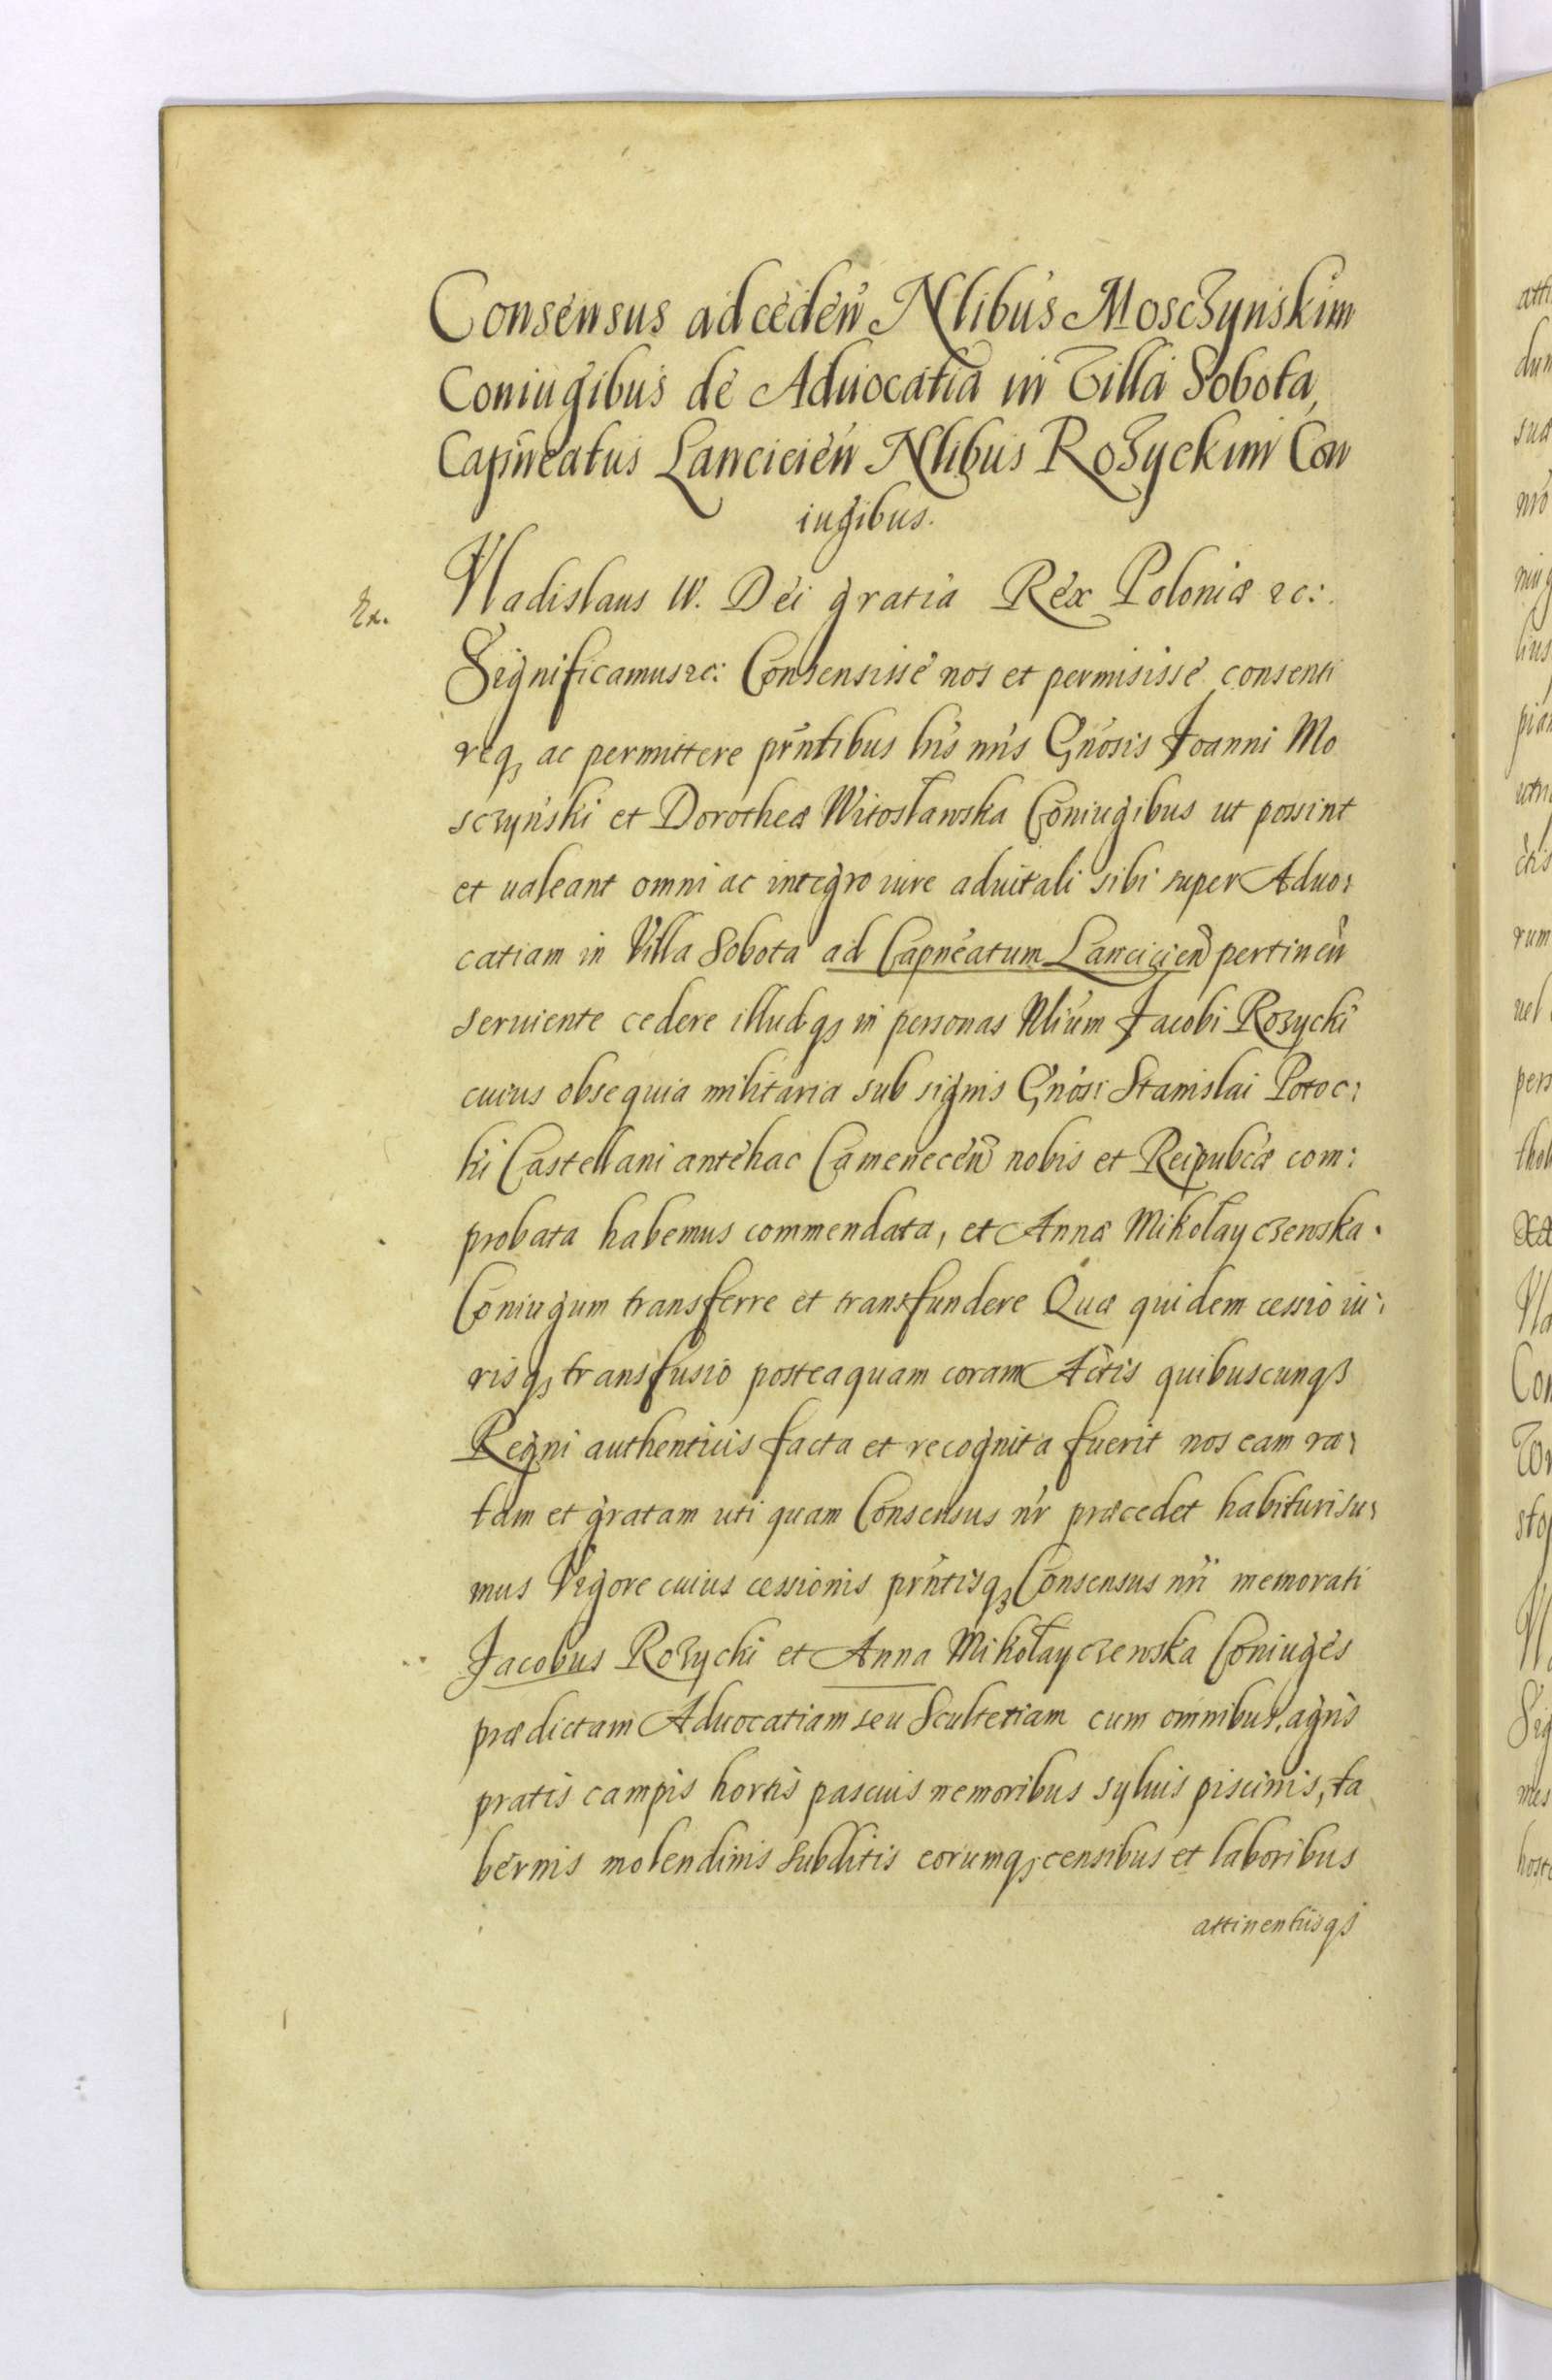 Consensus ad cedeñ Nlibus Moschynskim
Coniugibus de Aduocatia in Villa Sobota,
Capńeatus Lancicień Nlibus Rozyckim Con
iugibus.
Vladislaus IV. Dei gratia Rex Poloniæ &c:
Significamus &c: Consensisse nos et permisisse consenti
req₃ ac permittere pñtibus lris nris Gnosis Joanni Mo
sczyński et Dorotheæ Witosławska Coniugibus ut possint
et ualeant omni ac integro iure aduitali sibi super Aduo:
catiam in Villa Sobota ad Capneatum Lancicień pertineñ
seruiente cedere illudq₃ in personas Nlium Jacobi Rozycki
cuius obsequia militaria sub signis Gnosi Stanislai Potoc:
ki Castellani antehac Cameneceñ nobis et Reipubcæ com:
probata habemus commendata, et Annæ Mikołayczewska.
Coniugum transferre et transfundere Quæ quidem cessio iu:
risq₃ transfusio posteaquam coram Actis quibuscunq₃
Regni authenticis facta et recognita fuerit nos eam ra:
tam et gratam uti quam Consensus nr præcedet habituri su:
mus Vigore cuius cessionis pñtisq₃ Consensus nri memorati
Jacobus Rozycki et Anna Mikołayczewska Coniuges
prædictam Aduocatiam seu Scultetiam cum omnibus, agris
pratis campis hortis pascuis nemoribus syluis piscinis, ta
bernis molendinis subditis eorumq₃ censibus et laboribus
attinentiisq₃